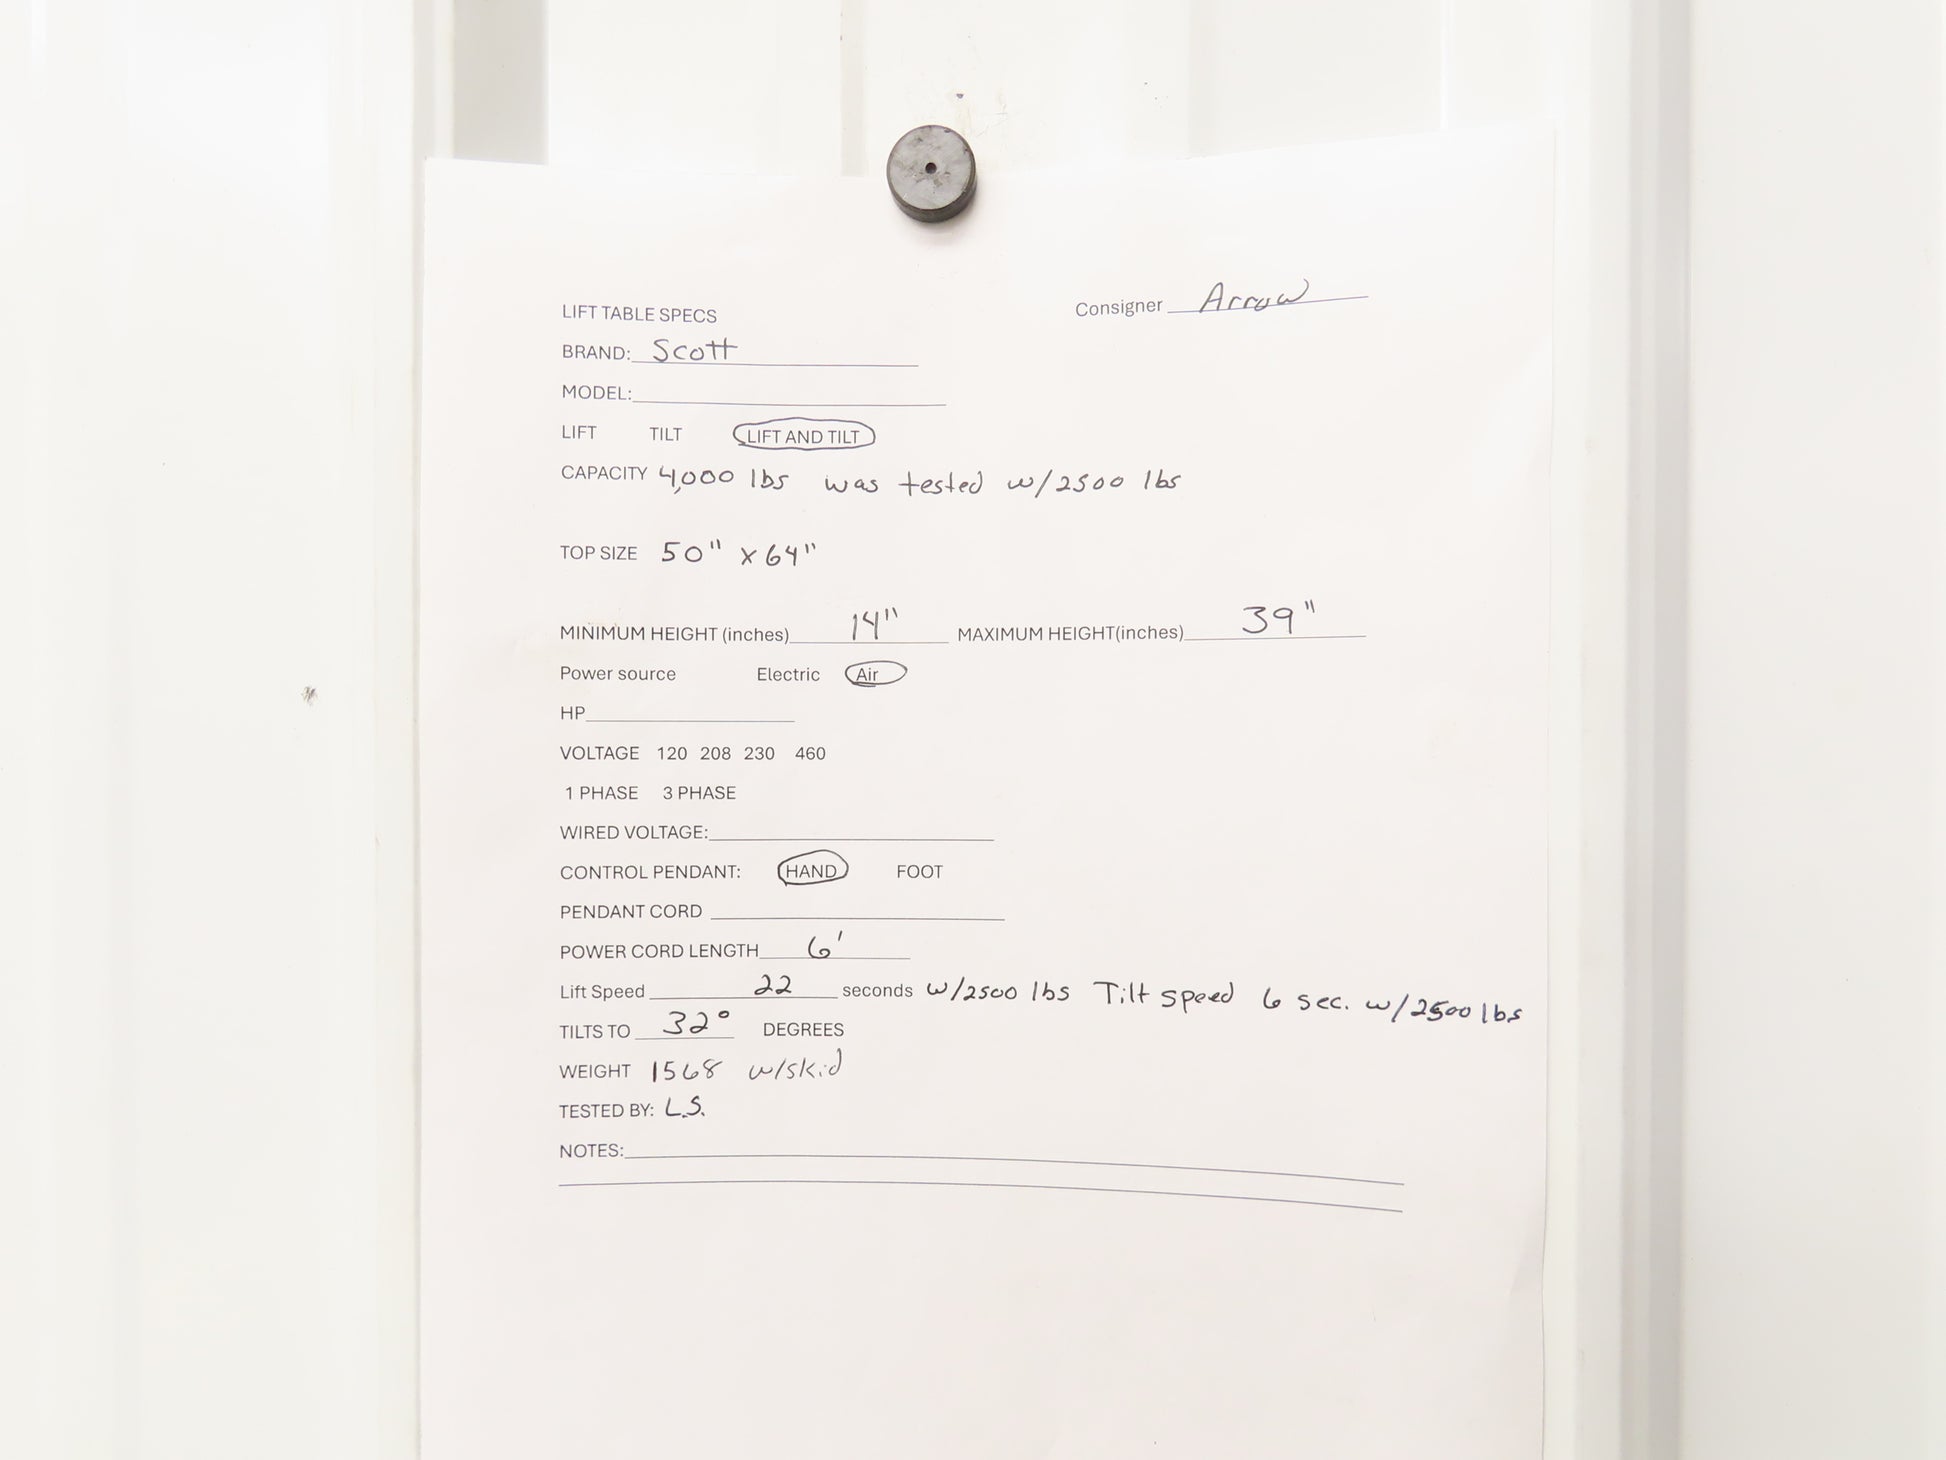 LIFT TABLE SPECS
Consigner Arrow
BRAND: Scott
MODEL:
LIFT TILT LIFT AND TILT
CAPACITY 4,000 lbs was tested w/2500 lbs
TOP SIZE 50" x 64"
MINIMUM HEIGHT (inches) 14" MAXIMUM HEIGHT(inches) 39"
Power source Electric Air
HP
VOLTAGE 120 208 230 460
1 PHASE 3 PHASE
WIRED VOLTAGE:
CONTROL PENDANT: HAND FOOT
PENDANT CORD
POWER CORD LENGTH 6'
Lift Speed 22 seconds w/2500 lbs Tilt speed 6 sec. w/2500 lbs
TILTS TO 32° DEGREES
WEIGHT 1568 w/skid
TESTED BY: L.S.
NOTES: